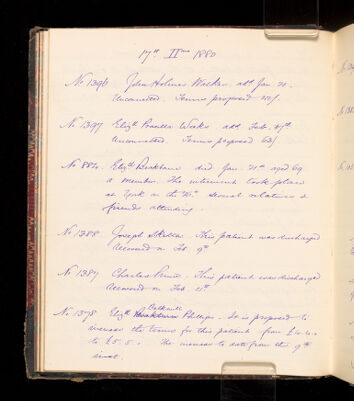 17th IImo 1880
No 1396 John Holmes Walker. adm. Jan. 21.
Unconnected. Terms proposed 21/.
No 1397 Elizth Priscilla Weeks. adm. Feb. 17th
Unconnected. Terms proposed 63/
No 884. Elizth died Jan. 21st aged 69.
a member. The interment took place
at York on the several relatives &
friends attending.
No 1388 Joseph This patient was discharged
Recovered on Feb. 9th
No 1387 Charles This patient was discharged
Recovered on Feb. 11th
No 1378 Elizth Phillips. It is proposed to
increase the terms for this patient from £4.4.
to £5.5.0. The increase to date from the 9th